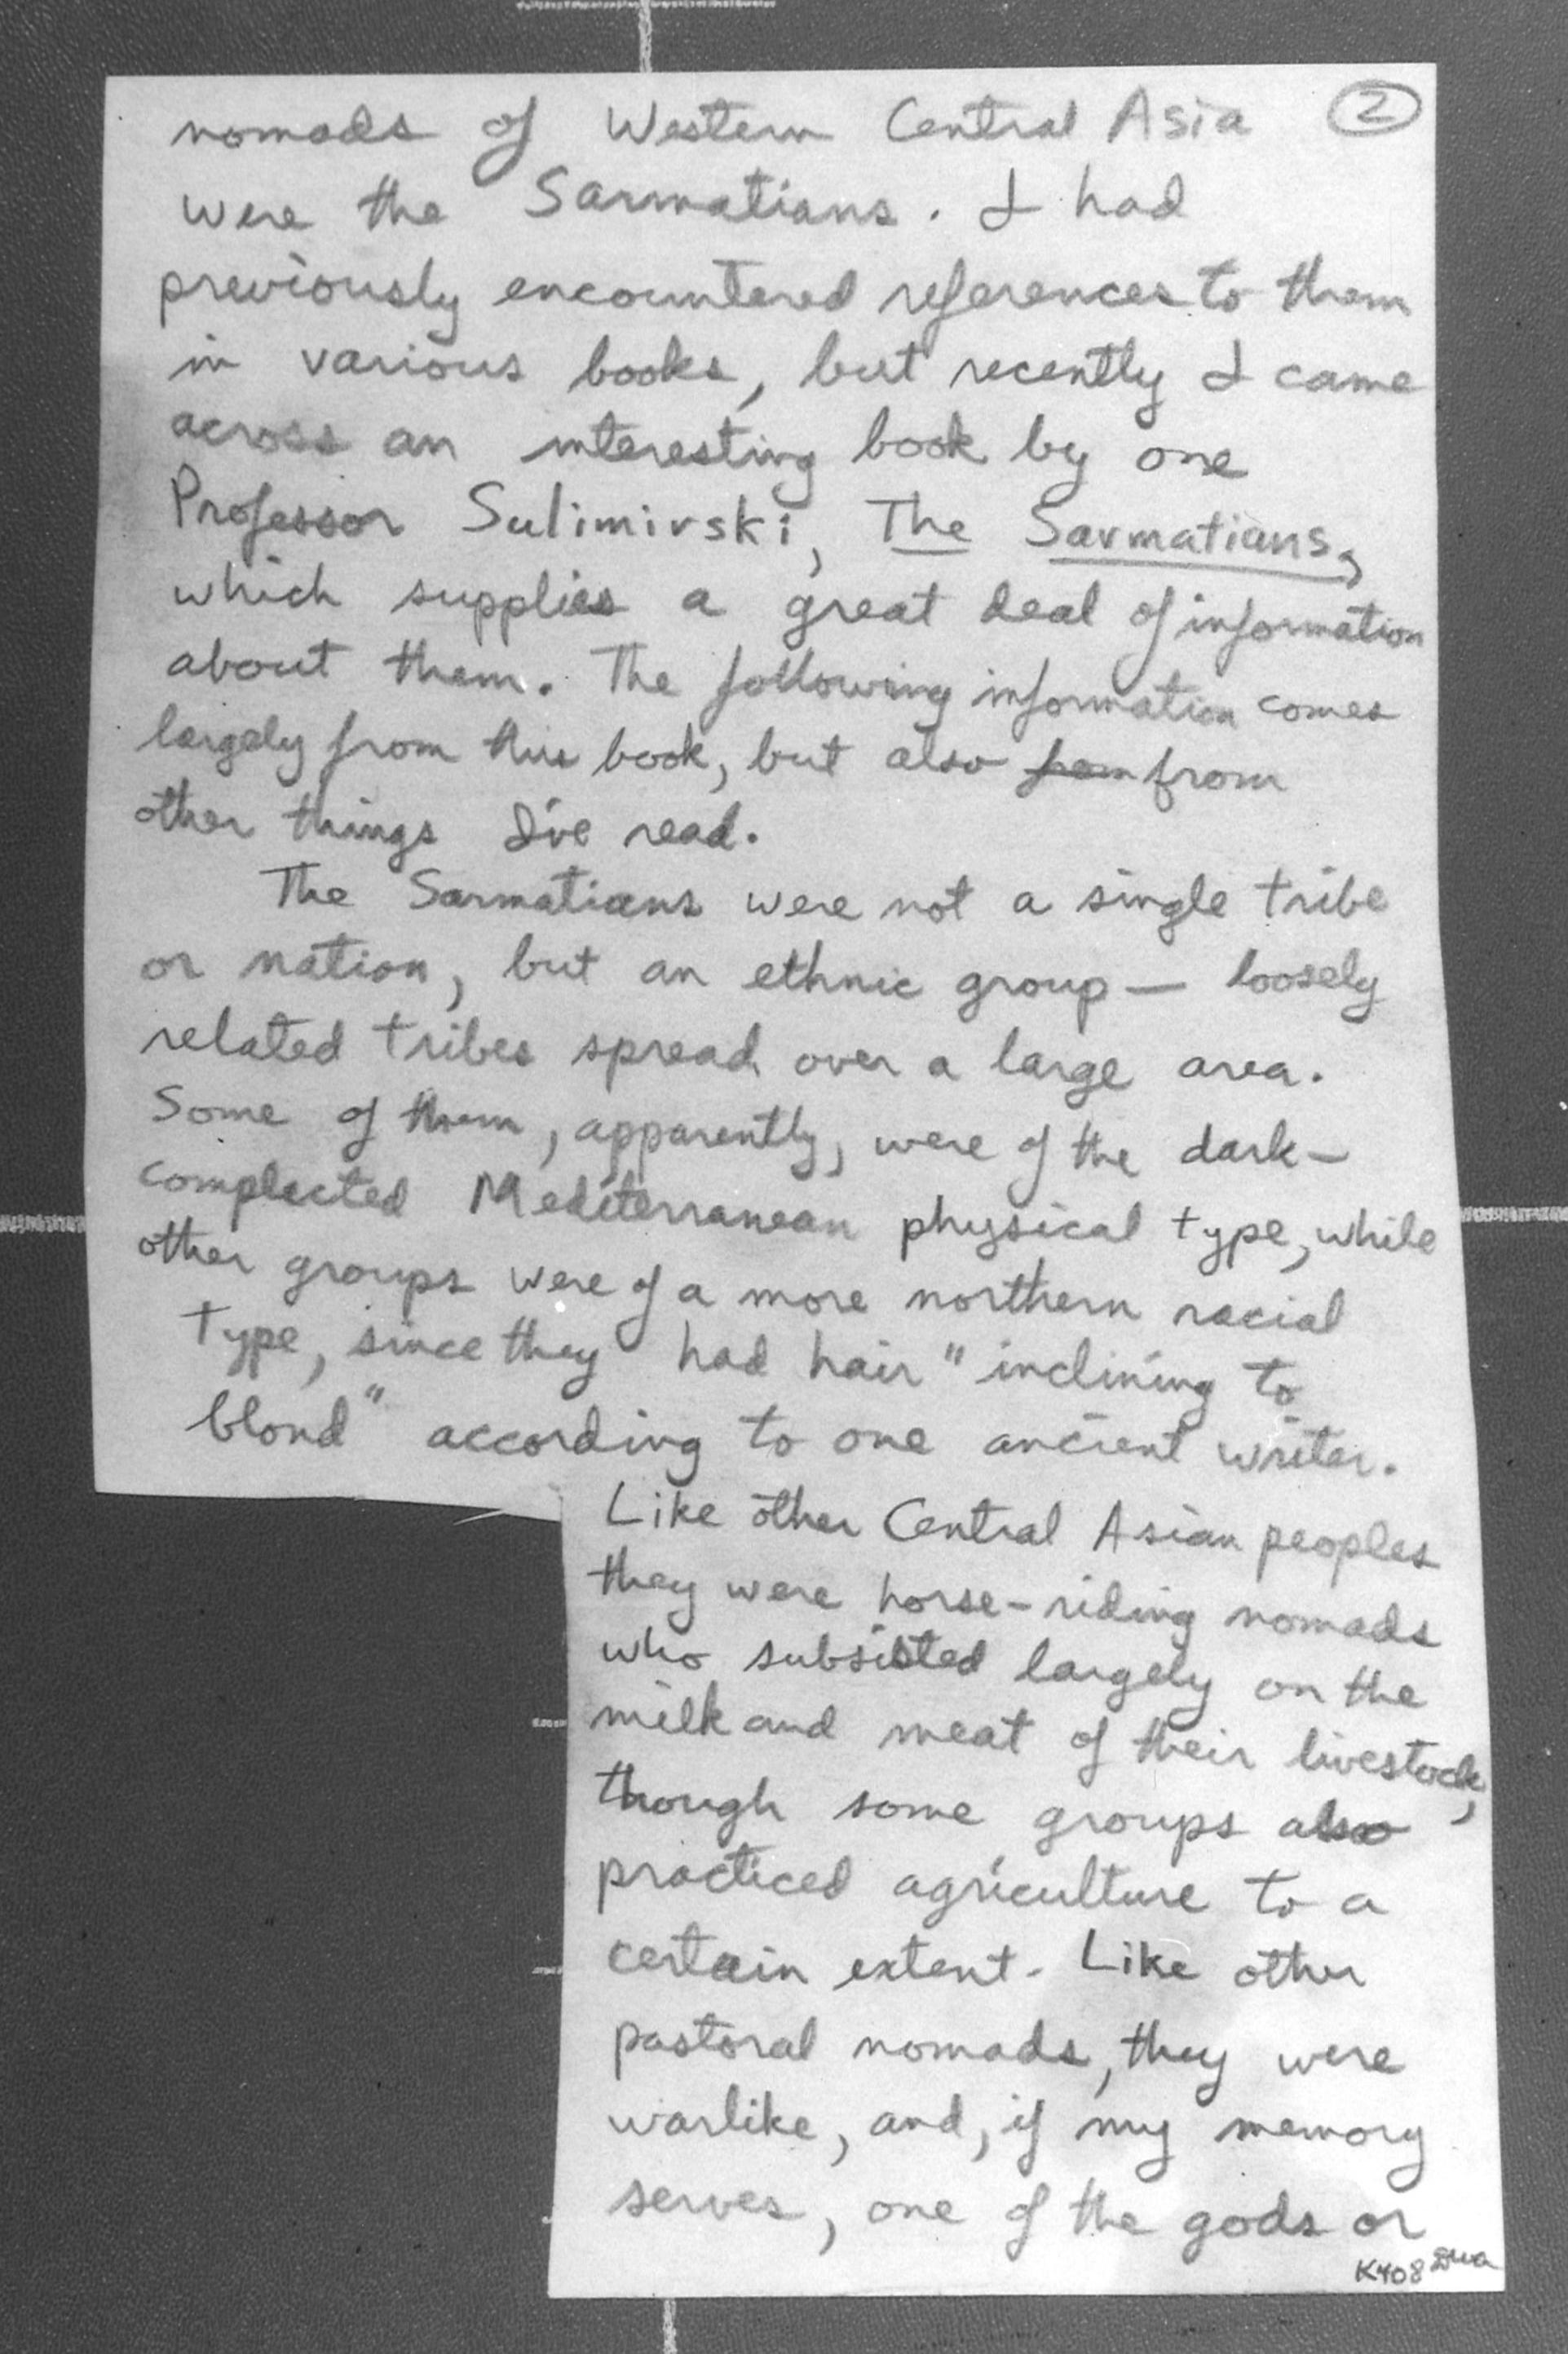 nomads of Western Central Asia 2
were the Sarmatians. I had
previously encountered references to them
in various books, but recently I came
across an interesting book by one
Professor Sulimirski, The Sarmatians,
which supplies a great deal of information
about them. The following information comes
largely from this book, but also from from
other things I've read.
The Sarmatians were not a single tribe
or nation, but an ethnic group — loosely
related tribes spread over a large area.
Some of them, apparently, were of the dark-
complected Mediterranean physical type, while
other groups were of a more northern racial
type, since they had hair "inclining to
blond" according to one ancient writer.
Like other Central Asian peoples
they were horse-riding nomads
who subsisted largely on the
milk and meat of their livestock,
though some groups also
practiced agriculture to a
certain extent. Like other
pastoral nomads, they were
warlike, and, if my memory
serves, one of the gods or
K408